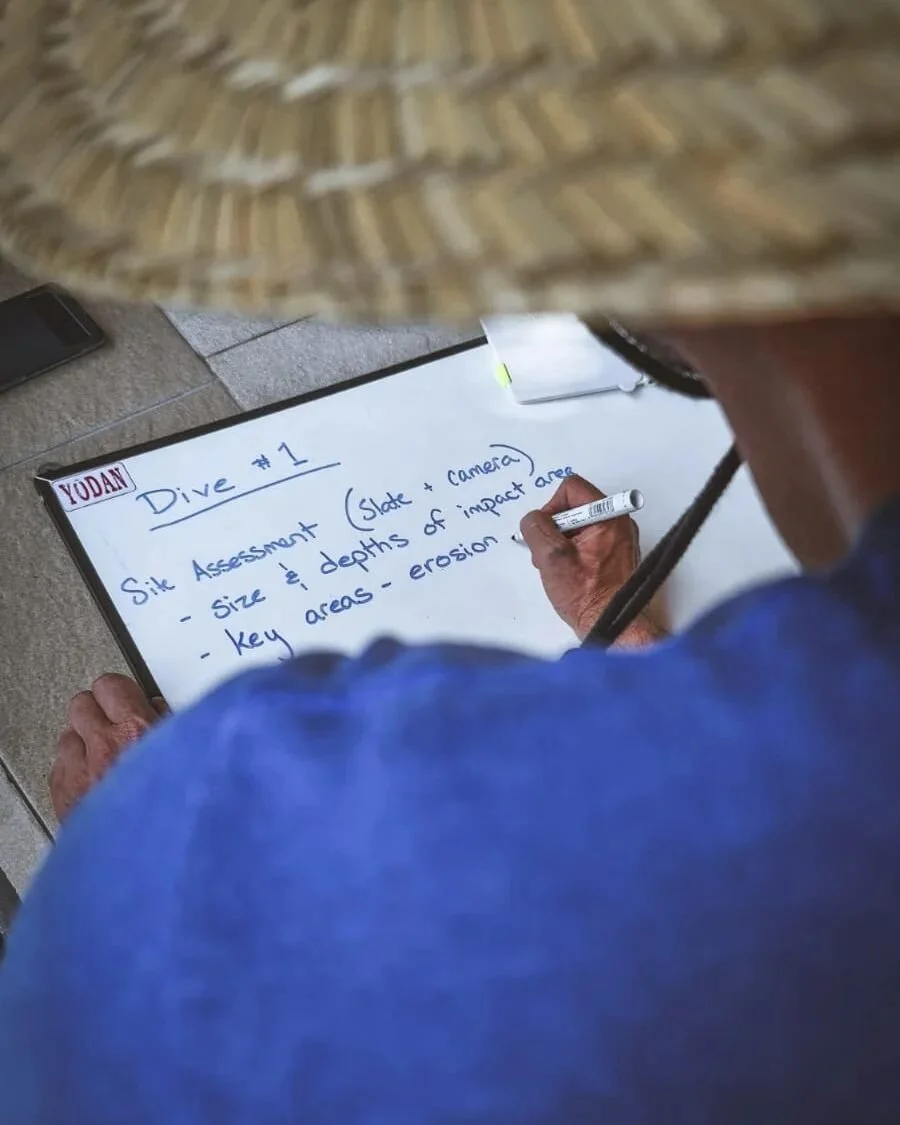 YODAN
Dive #1
Site Assessment (Slate + camera)
- size & depths of impact area
- key areas - erosion